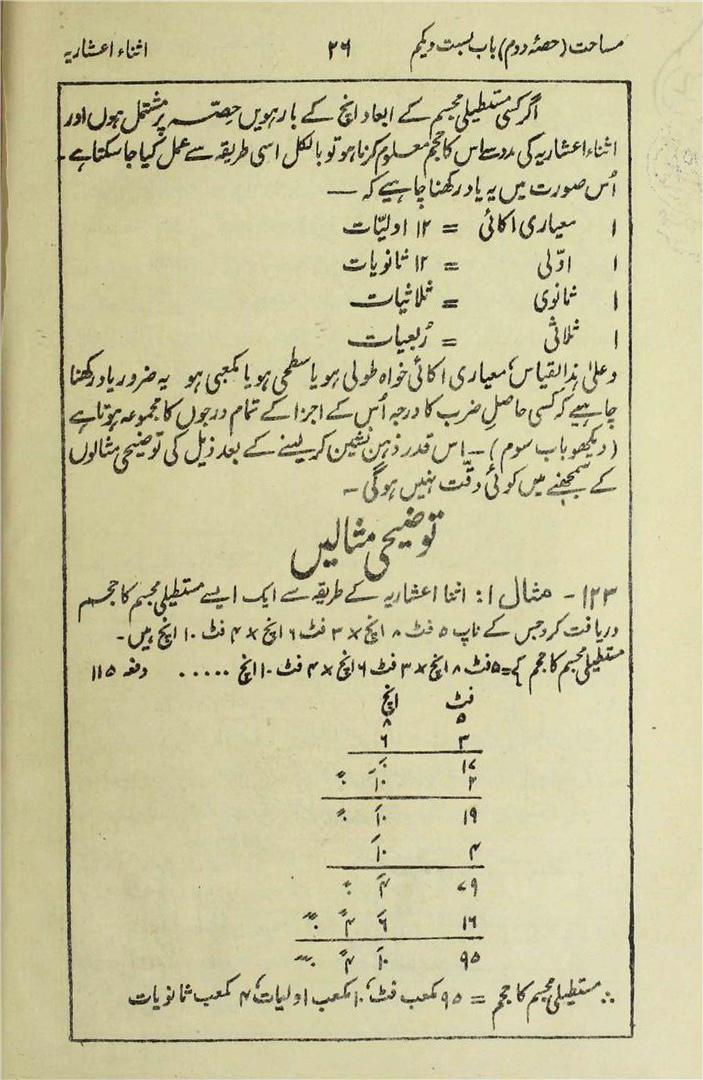 مساحت (حصّہ دوم) باب بست و یکم ۲۶ اثناء اعشاریہ
اگر کسی مستطیلی مجسم کے ابعاد انچ کے بارہویں حِصّہ پر مشتمل ہوں اور
اثناء اعشاریہ کی مدد سے اس کا حجم معلوم کرنا ہو تو بالکل اسی طریقہ سے عمل کیا جا سکتا ہے۔
اُس صورت میں یہ یاد رکھنا چاہیے کہ —
۱ معیاری اکائی = ۱۲ اولیّات
۱ اوّلی = ۱۲ ثانویات
۱ ثانوی = ثلاثیات
۱ ثلاثی = رُبعیات
وعلیٰ ہذا القیاس، معیاری اکائی خواہ طولی ہو یا سطحی ہو یا مکعبی ہو یہ ضرور یاد رکھنا
چاہیے کہ کسی حاصلِ ضرب کا درجہ اُس کے اجزا کے تمام درجوں کا مجموعہ ہوتا ہے
(دیکھو باب سوم) ۔ اس قدر ذہن نشین کر لینے کے بعد ذیل کی توضیحی مثالوں
کے سمجھنے میں کوئی دقّت نہیں ہوگی ۔
توضیحی مثالیں
۱۲۳ - مثال ۱: اثنا اعشاریہ کے طریقہ سے ایک ایسے مستطیلی مجسم کا حجم
دریافت کرو جس کے ناپ ۵ فٹ ۸ انچ × ۳ فٹ ۶ انچ × ۴ فٹ ۱۰ انچ ہیں۔
مستطیلی مجسم کا حجم = ۵ فٹ ۸ انچ × ۳ فٹ ۶ انچ × ۴ فٹ ۱۰ انچ ..... دفعہ ۱۱۵
فٹ انچ
۵ ۸
۳ ۶
۱۷ ۰′
۲ ۱۰′ ۰″
۱۹ ۱۰′ ۰″
۴ ۱۰′
۷۹ ۴′ ۰″
۱۶ ۶′ ۴″ ۰‴
۹۵ ۱۰′ ۴″ ۰‴
∴ مستطیلی مجسم کا حجم = ۹۵ مکعب فٹ، ۱۰ مکعب اولیات، ۴ مکعب ثانویات